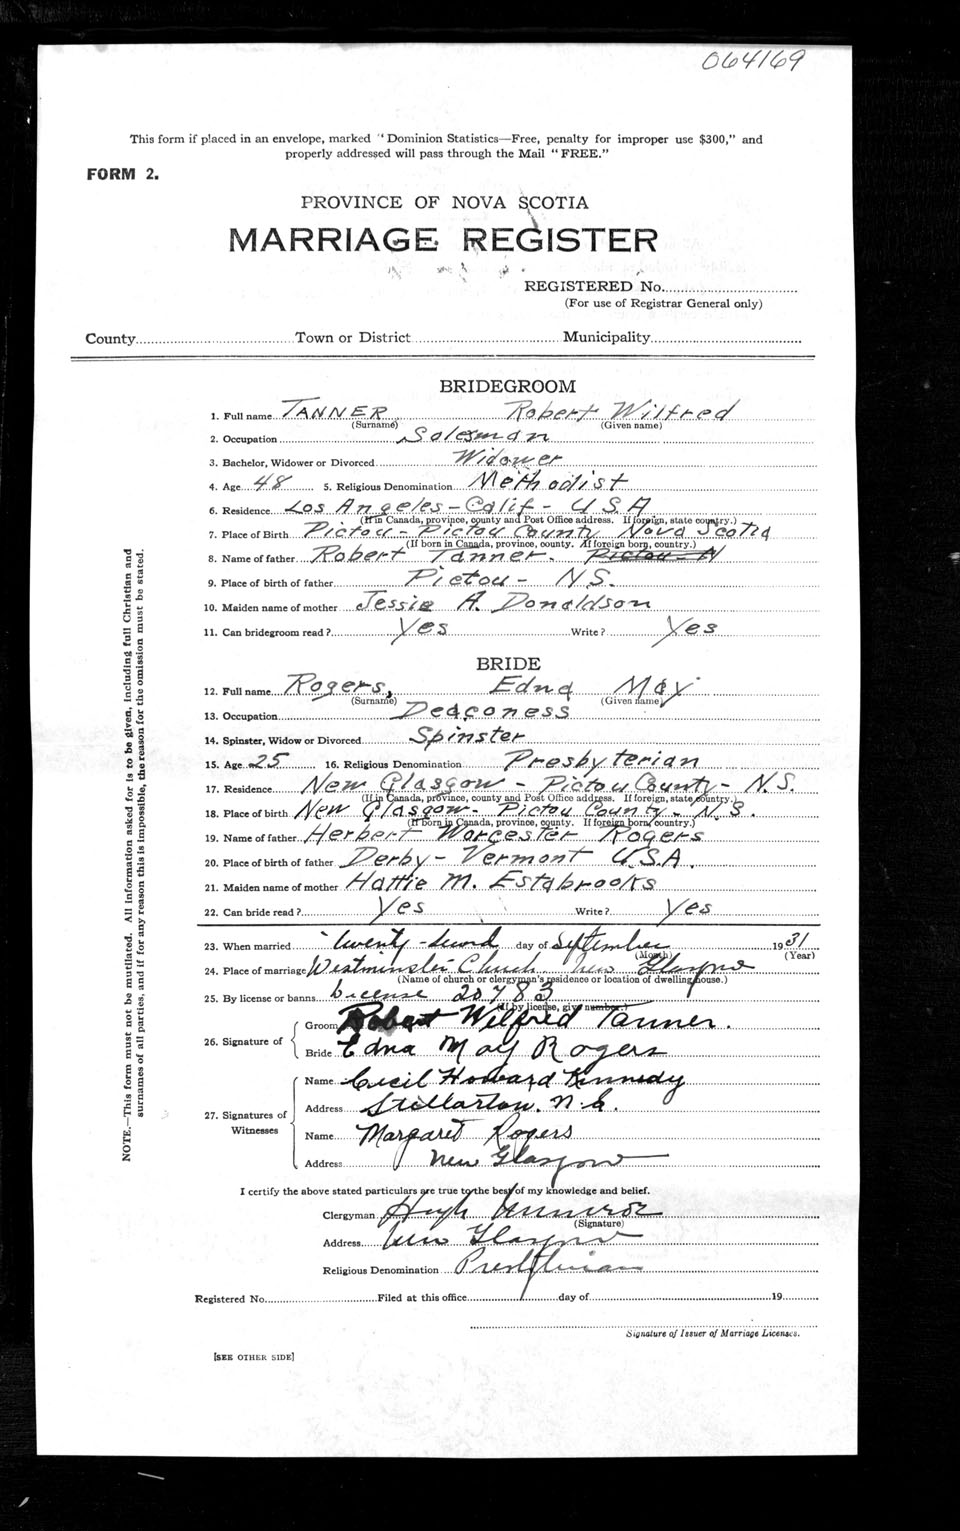 064169
This form if placed in an envelope, marked "Dominion Statistics—Free, penalty for improper use $300," and
properly addressed will pass through the Mail "FREE."
FORM 2.
PROVINCE OF NOVA SCOTIA
MARRIAGE REGISTER
REGISTERED No.
(For use of Registrar General only)
County Town or District Municipality
BRIDEGROOM
1. Full name TANNER Robert Wilfred
(Surname) (Given name)
2. Occupation Salesman
3. Bachelor, Widower or Divorced Widower
4. Age 48 5. Religious Denomination Methodist
6. Residence Los Angeles - Calif - USA
(If in Canada, province, county and Post Office address. If foreign, state country.)
7. Place of Birth Pictou - Pictou County Nova Scotia
(If born in Canada, province, county. If foreign born, country.)
8. Name of father Robert Tanner. Pictou - N
9. Place of birth of father Pictou - NS.
10. Maiden name of mother Jessie A. Donaldson
11. Can bridegroom read? Yes Write? Yes
BRIDE
12. Full name Rogers, Edna May
(Surname) (Given name)
13. Occupation Deaconess
14. Spinster, Widow or Divorced Spinster
15. Age 25 16. Religious Denomination Presbyterian
17. Residence New Glasgow - Pictou County - N.S.
(If in Canada, province, county and Post Office address. If foreign, state country.)
18. Place of birth New Glasgow - Pictou County - N.S.
(If born in Canada, province, county. If foreign born, country.)
19. Name of father Herbert Worcester Rogers
20. Place of birth of father Derby - Vermont U.S.A.
21. Maiden name of mother Hattie M. Estabrooks
22. Can bride read? Yes Write? Yes
23. When married Twenty-second day of September 1931
(Month) (Year)
24. Place of marriage Westminster Church New Glasgow
(Name of church or clergyman's residence or location of dwelling house.)
25. By license or banns License 20783
(If by license, give number.)
26. Signature of
Groom Robert Wilfred Tanner.
Bride Edna May Rogers
27. Signatures of Witnesses
Name Cecil Howard Kennedy
Address Stellarton, N.S.
Name Margaret Rogers
Address New Glasgow
I certify the above stated particulars are true to the best of my knowledge and belief.
Clergyman Hugh Munroe
(Signature)
Address New Glasgow
Religious Denomination Presbyterian
Registered No. Filed at this office day of 19
Signature of Issuer of Marriage Licenses.
[SEE OTHER SIDE]
NOTE.—This form must not be mutilated. All information asked for is to be given, including full Christian and
surnames of all parties, and if for any reason this is impossible, the reason for the omission must be stated.